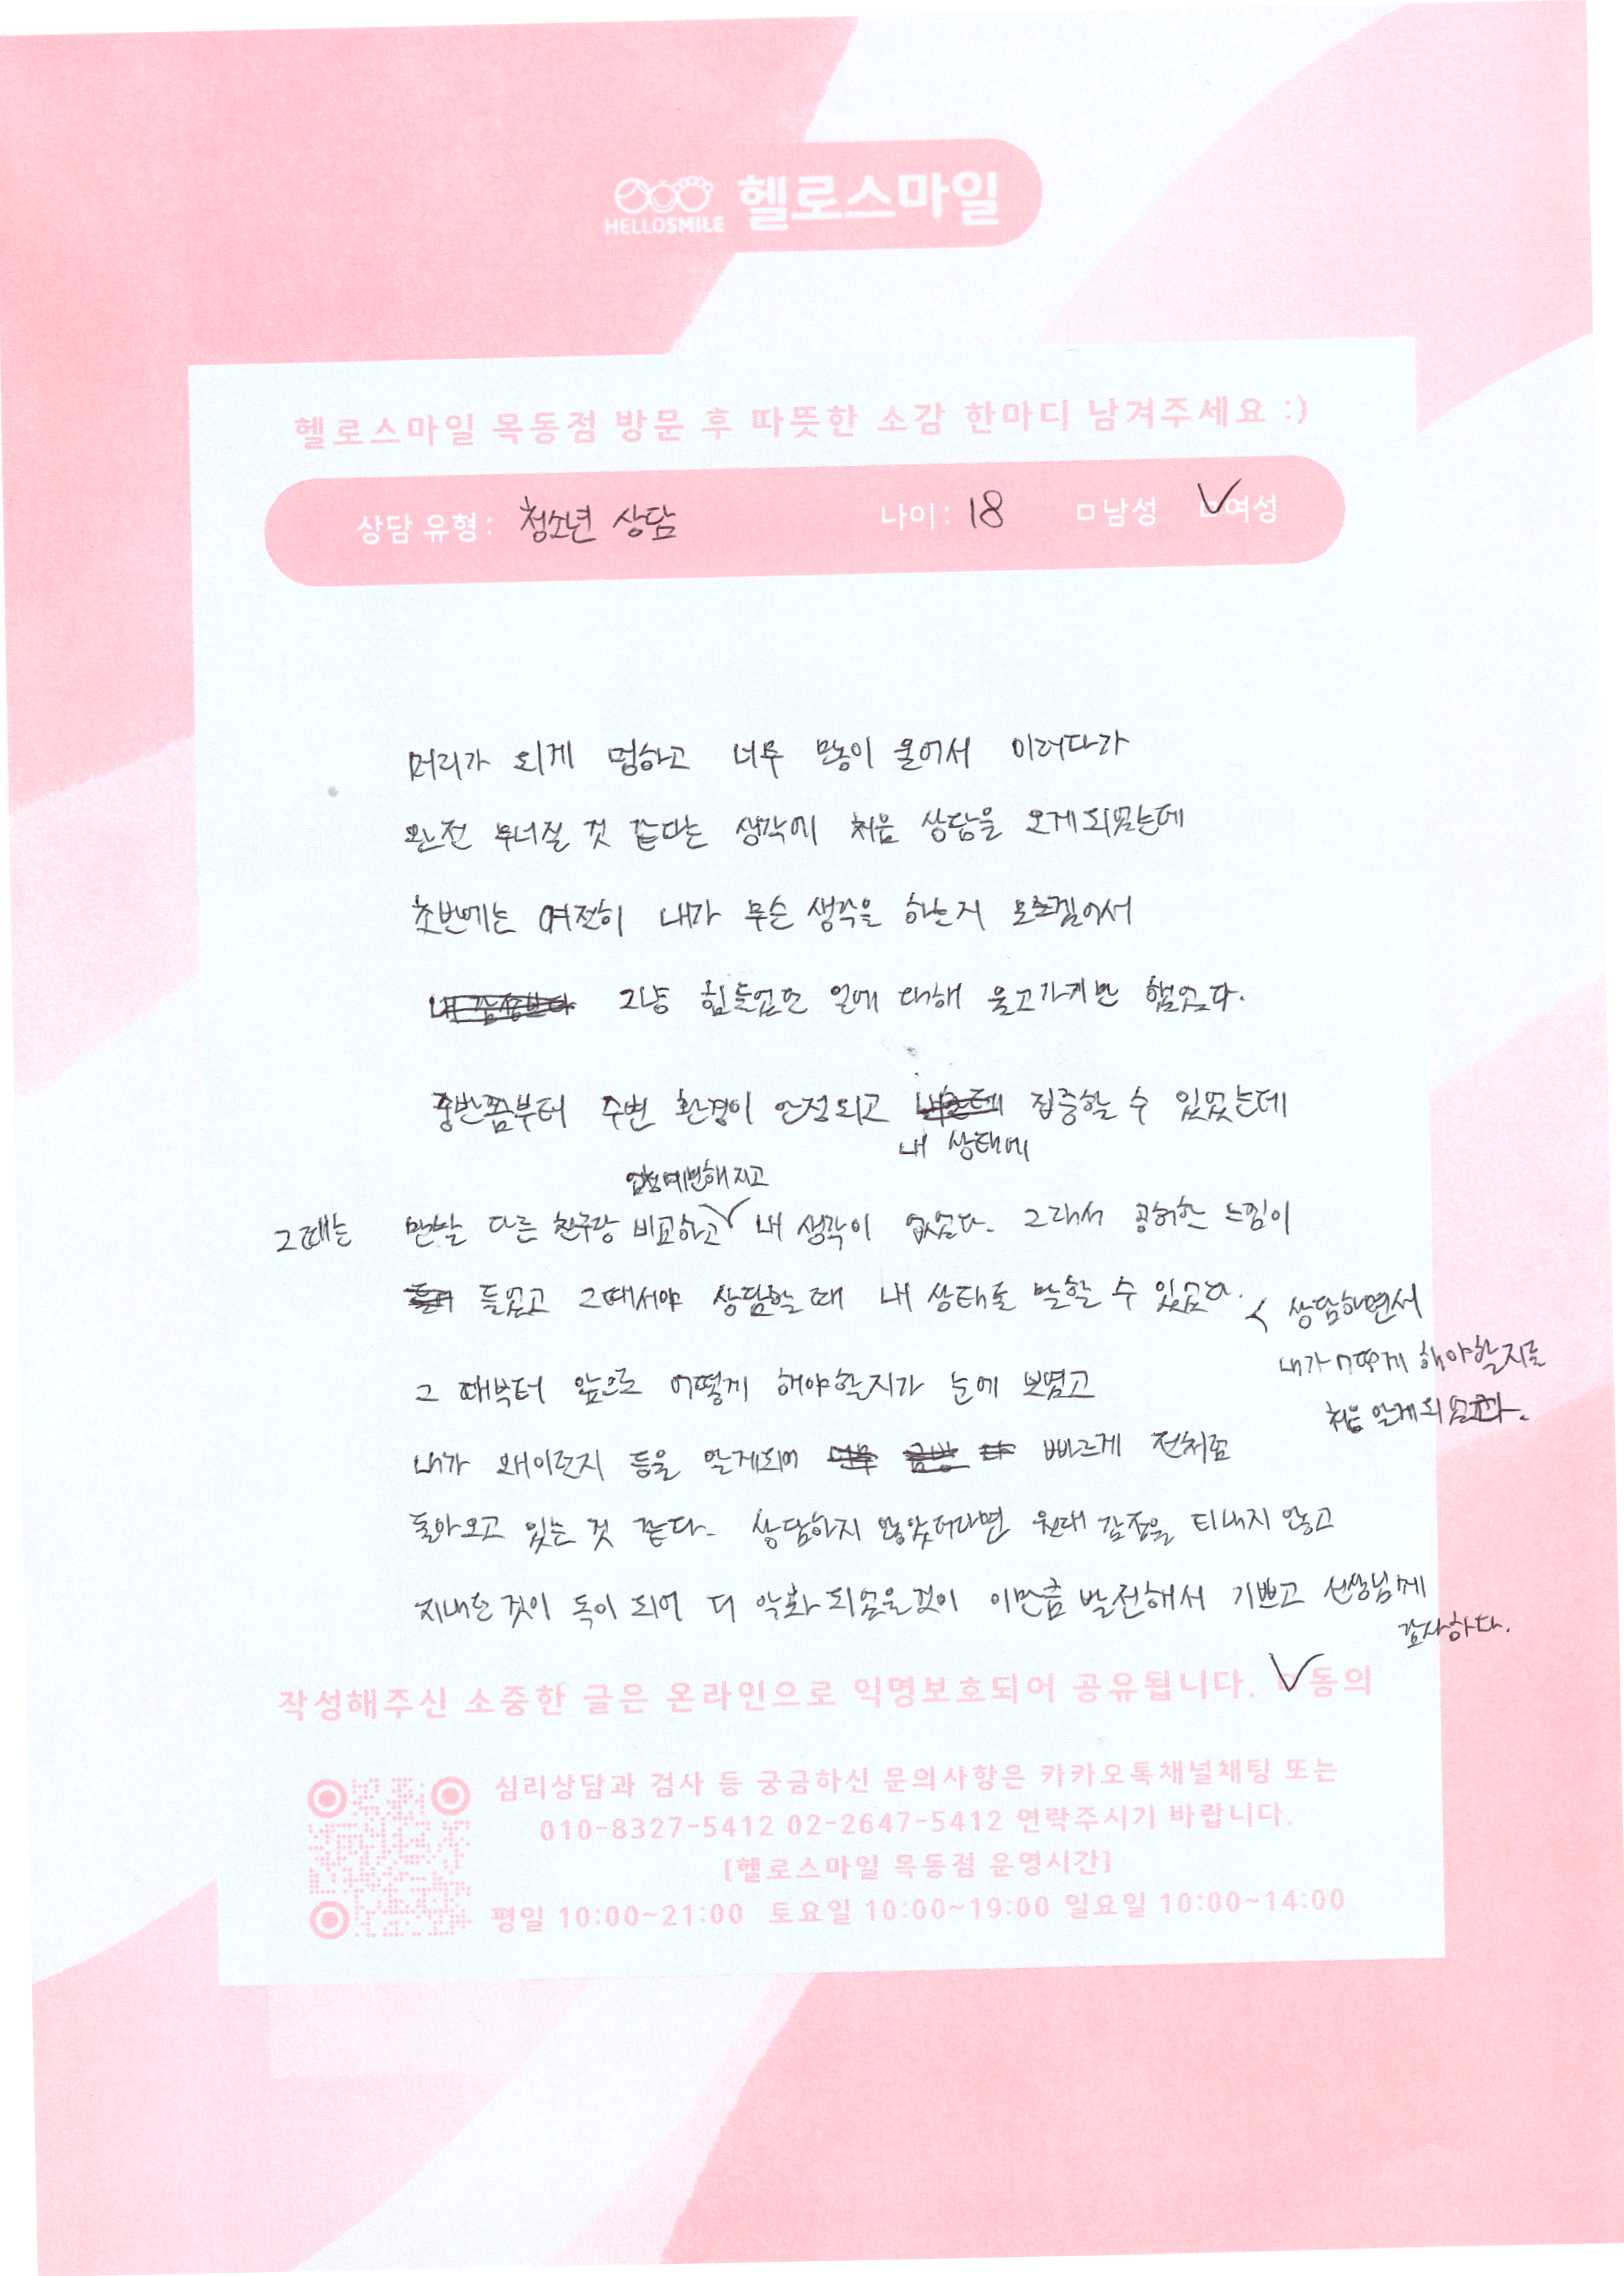 HELLOSMILE 헬로스마일
헬로스마일 목동점 방문 후 따뜻한 소감 한마디 남겨주세요 :)
상담 유형: 청소년 상담 나이: 18 □남성 ☑여성
머리가 되게 멍하고 너무 많이 울어서 이러다가
완전 무너질 것 같다는 생각에 처음 상담을 오게되었는데
초반에는 여전히 내가 무슨 생각을 하는지 모르겠어서
그냥 힘들었던 일에 대해 울고가기만 했었다.
중반쯤부터 주변 환경이 안정되고 집중할 수 있었는데
내 상태에
엄청 예민해지고
그때는 맨날 다른 친구랑 비교하고 내 생각이 없었다. 그래서 공허한 느낌이
들었고 그때서야 상담할 때 내 상태를 말할 수 있었다.
상담하면서
내가 어떻게 해야할지를
처음 알게되었다.
그 때부터 앞으로 어떻게 해야할지가 눈에 보였고
내가 왜이런지 등을 알게되어 빠르게 전처럼
돌아오고 있는 것 같다. 상담하지 않았더라면 원래 감정을 티내지 않고
지내던 것이 독이 되어 더 악화 되었을것이 이만큼 발전해서 기쁘고 선생님께
감사하다.
작성해주신 소중한 글은 온라인으로 익명보호되어 공유됩니다. ☑동의
심리상담과 검사 등 궁금하신 문의사항은 카카오톡채널채팅 또는
010-8327-5412 02-2647-5412 연락주시기 바랍니다.
[헬로스마일 목동점 운영시간]
평일 10:00~21:00 토요일 10:00~19:00 일요일 10:00~14:00